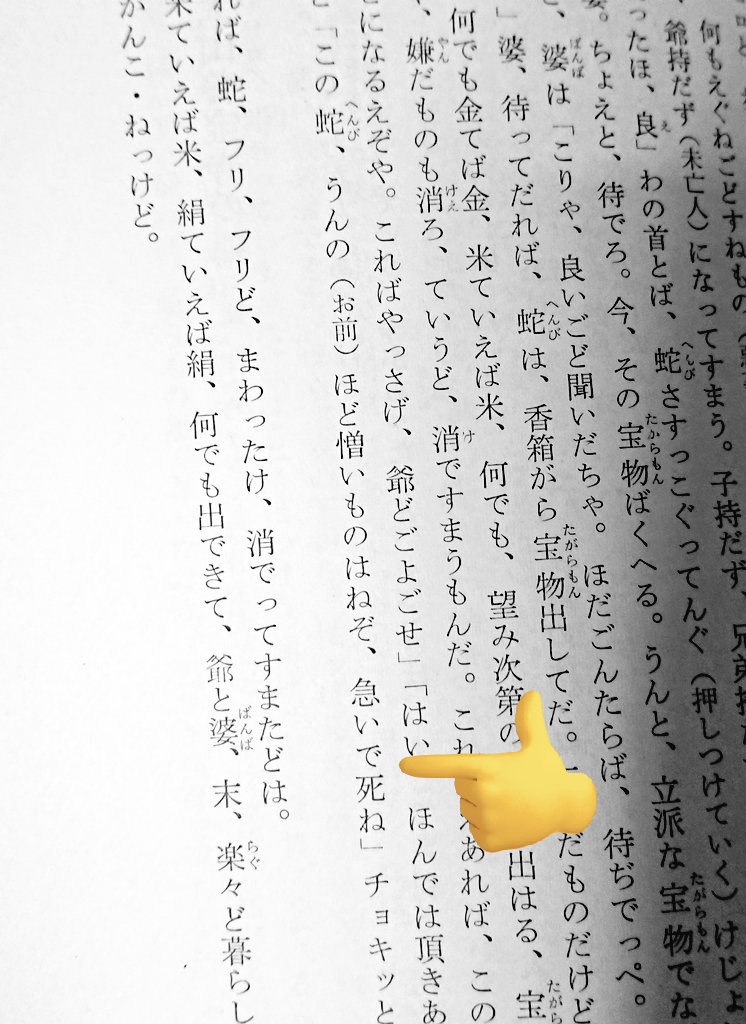 何もえぐねごどすねもの（
、爺持だず（未亡人）になってすまう。子持だず、兄弟持だ
ったほ、良」わの首とば、蛇さすっこぐってんぐ（押しつけていく）けじょ
婆。ちょえと、待でろ。今、その宝物ばくへる。うんと、立派な宝物でな
と、婆は「こりゃ、良いごど聞いだちゃ。ほだごんたらば、待ぢでっぺ。
」婆、待ってだれば、蛇は、香箱がら宝物出してだ。だものだけど
何でも金てば金、米ていえば米、何でも、望み次第の出はる、宝
、嫌だものも消ろ、ていうど、消ですまうもんだ。これあれば、この
どになるえぞや。こればやっさげ、爺どごよごせ」「はいほんでは頂きあ
「この蛇、うんの（お前）ほど憎いものはねぞ、急いで死ね」チョキッと
れば、蛇、フリ、フリど、まわったけ、消でってすまたどは。
米ていえば米、絹ていえば絹、何でも出できて、爺と婆、末、楽々ど暮らし
かんこ・ねっけど。